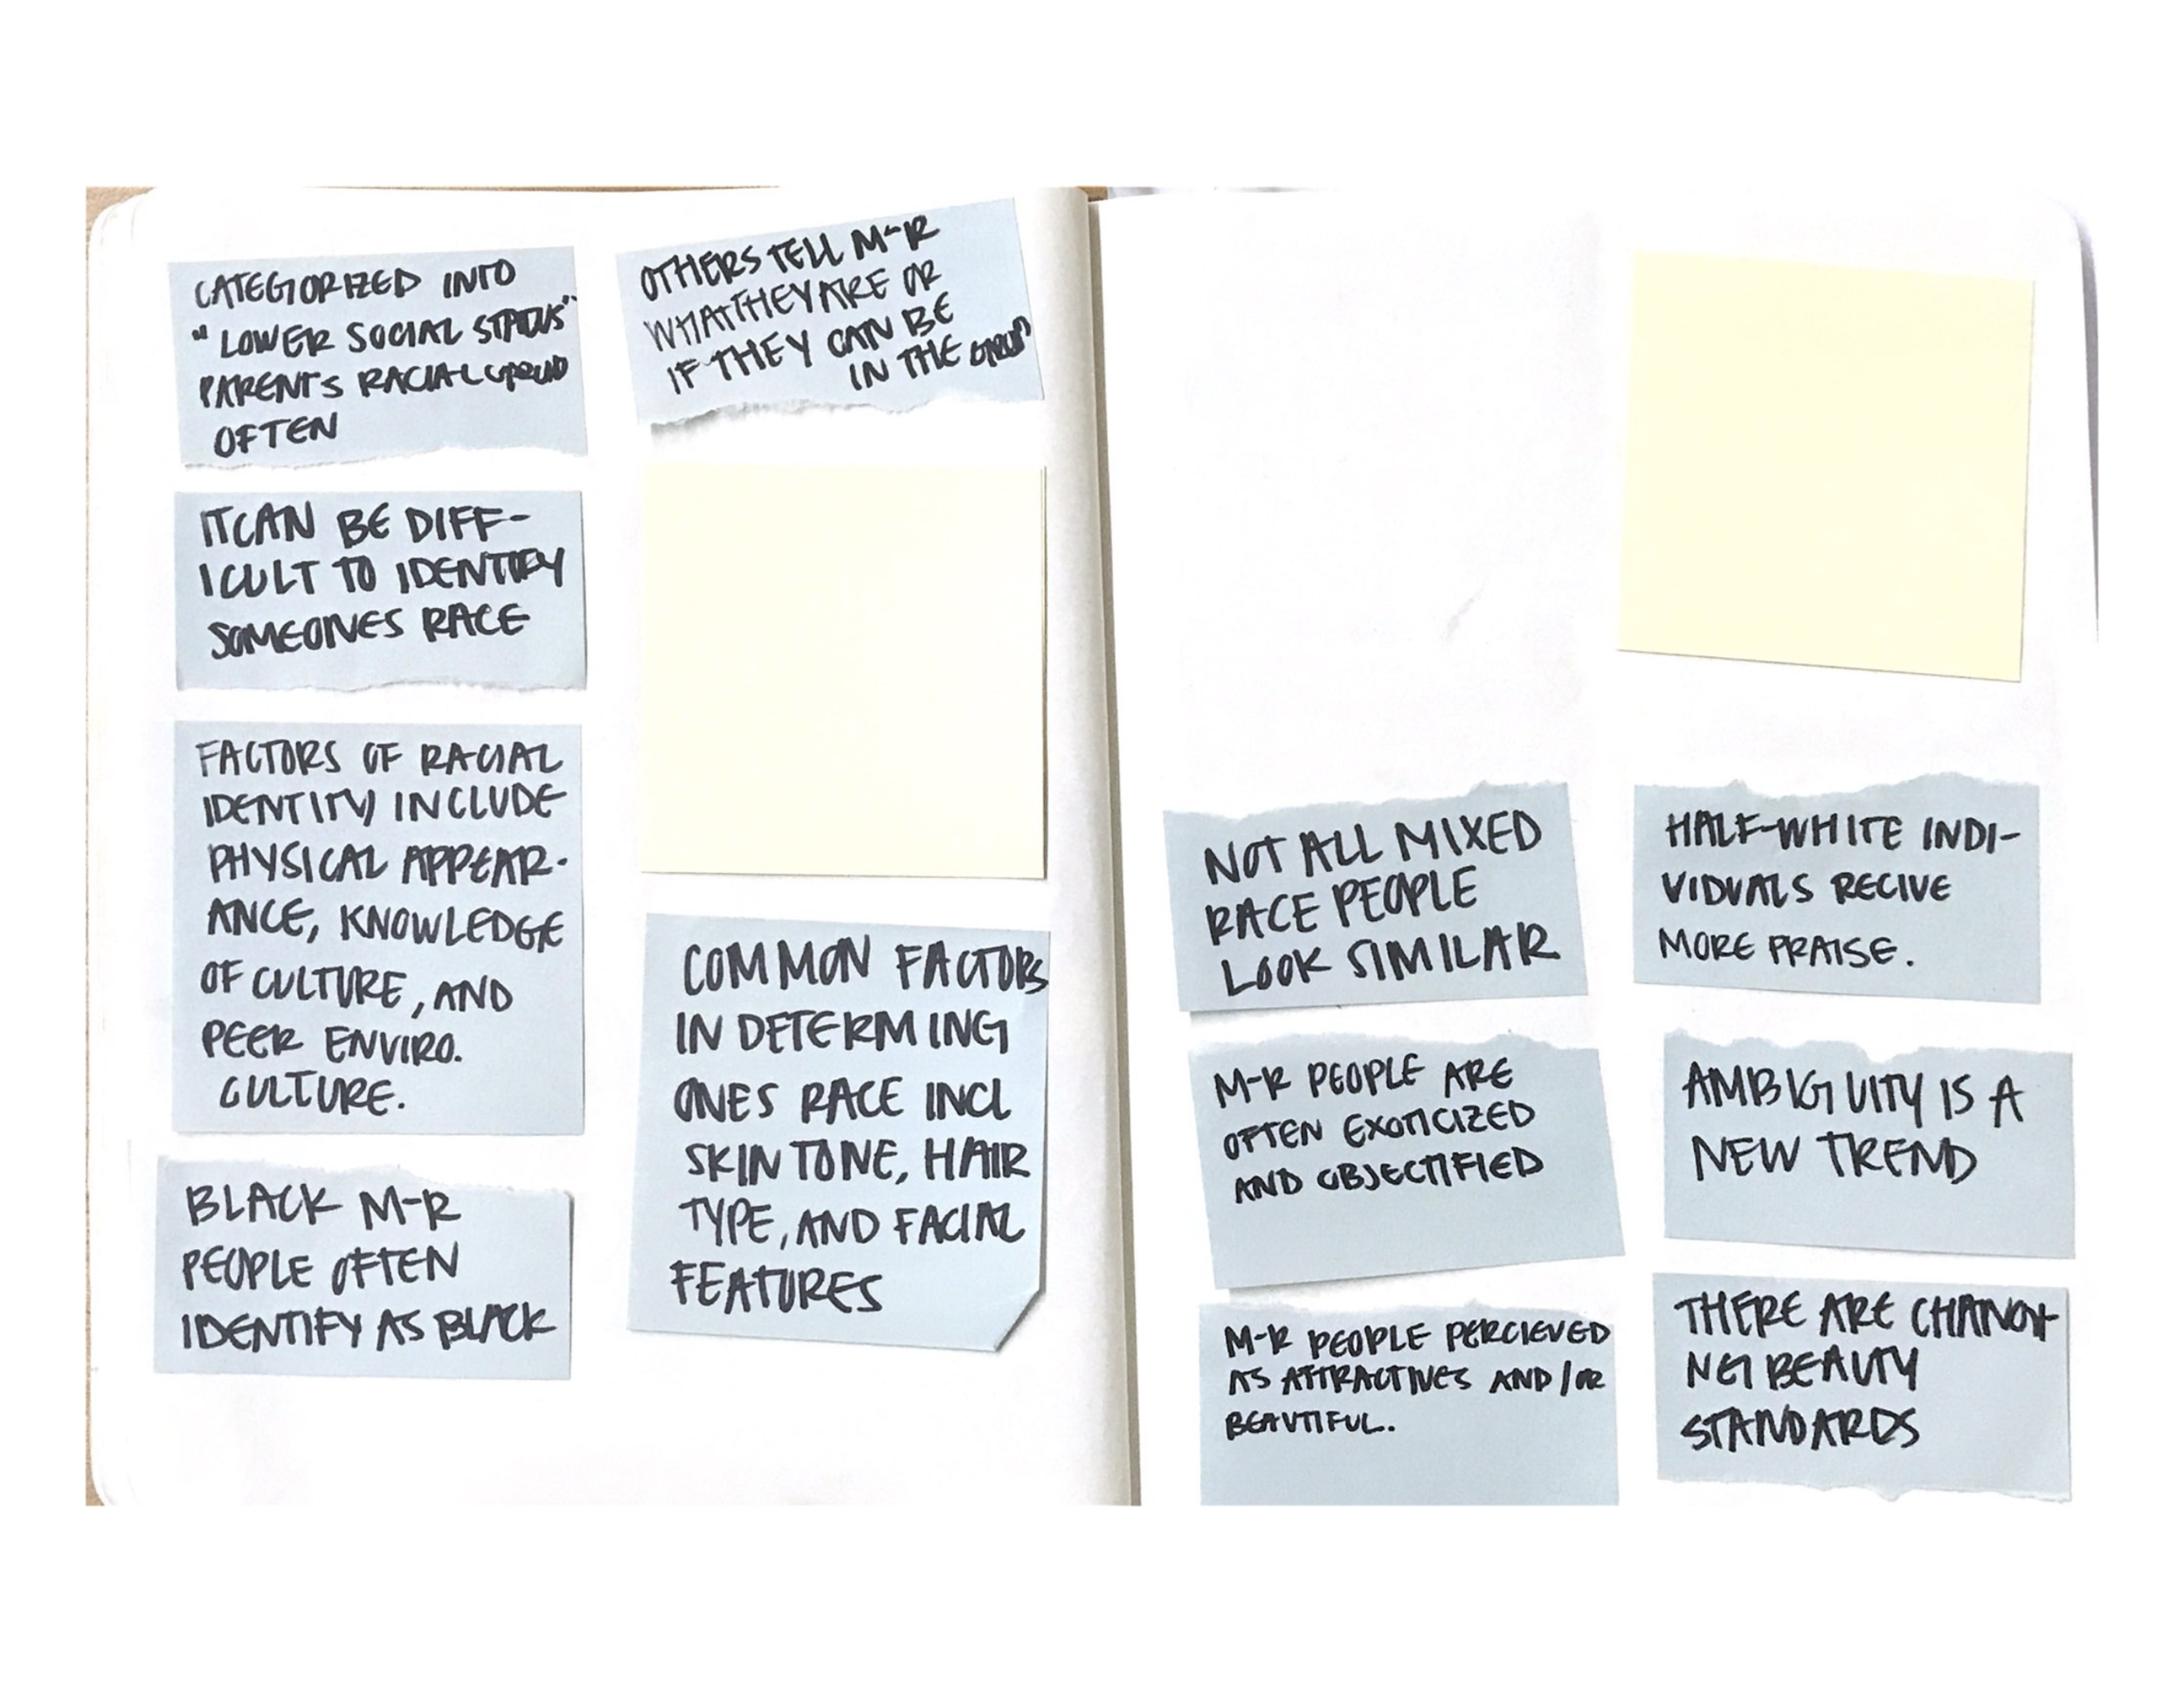 CATEGORIZED INTO
"LOWER SOCIAL STATUS"
PARENT'S RACIAL GROUP
OFTEN
IT CAN BE DIFF-
ICULT TO IDENTIFY
SOMEONES RACE
FACTORS OF RACIAL
IDENTITY INCLUDE
PHYSICAL APPEAR-
ANCE, KNOWLEDGE
OF CULTURE, AND
PEER ENVIRO.
CULTURE.
BLACK M-R
PEOPLE OFTEN
IDENTIFY AS BLACK
OTHERS TELL M-R
WHAT THEY ARE OR
IF THEY CAN BE
IN THE GROUP
COMMON FACTORS
IN DETERMING
ONES RACE INCL
SKIN TONE, HAIR
TYPE, AND FACIAL
FEATURES
NOT ALL MIXED
RACE PEOPLE
LOOK SIMILAR
M-R PEOPLE ARE
OFTEN EXOTICIZED
AND OBJECTIFIED
M-R PEOPLE PERCIEVED
AS ATTRACTIVES AND/OR
BEAUTIFUL.
HALF-WHITE INDI-
VIDUALS RECIVE
MORE PRAISE.
AMBIGUITY IS A
NEW TREND
THERE ARE CHANGI-
NG BEAUTY
STANDARDS